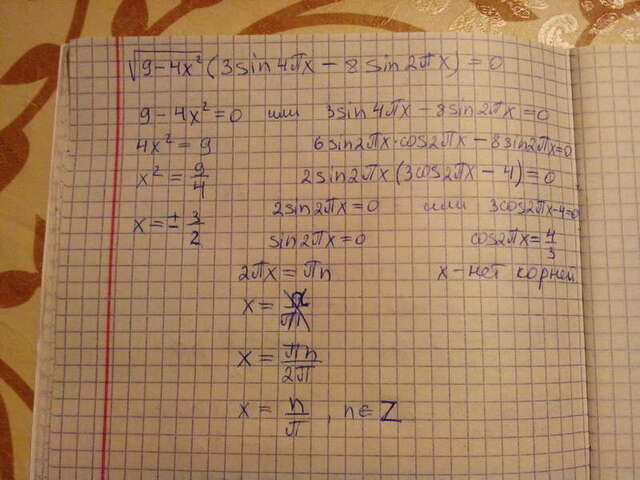 √(9-4x²) (3sin4πx - 8sin2πx) = 0
9-4x²=0 или 3sin4πx-8sin2πx=0
4x² = 9 6sin2πx·cos2πx - 8sin2πx=0
x² = 9/4 2sin2πx(3cos2πx - 4)=0
x = ± 3/2 2sin2πx=0 или 3cos2πx-4=0
sin2πx=0 cos2πx=4/3
2πx = πn x-нет корней
x =
x = πn/2π
x = n/π, n∈Z